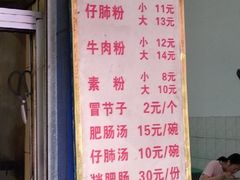 仔肺粉 小 11元
大 13元
牛肉粉 小 12元
大 14元
素粉 小 8元
大 10元
冒节子 2元/个
肥肠汤 15元/碗
仔肺汤 10元/碗
拌肥肠 30元/份